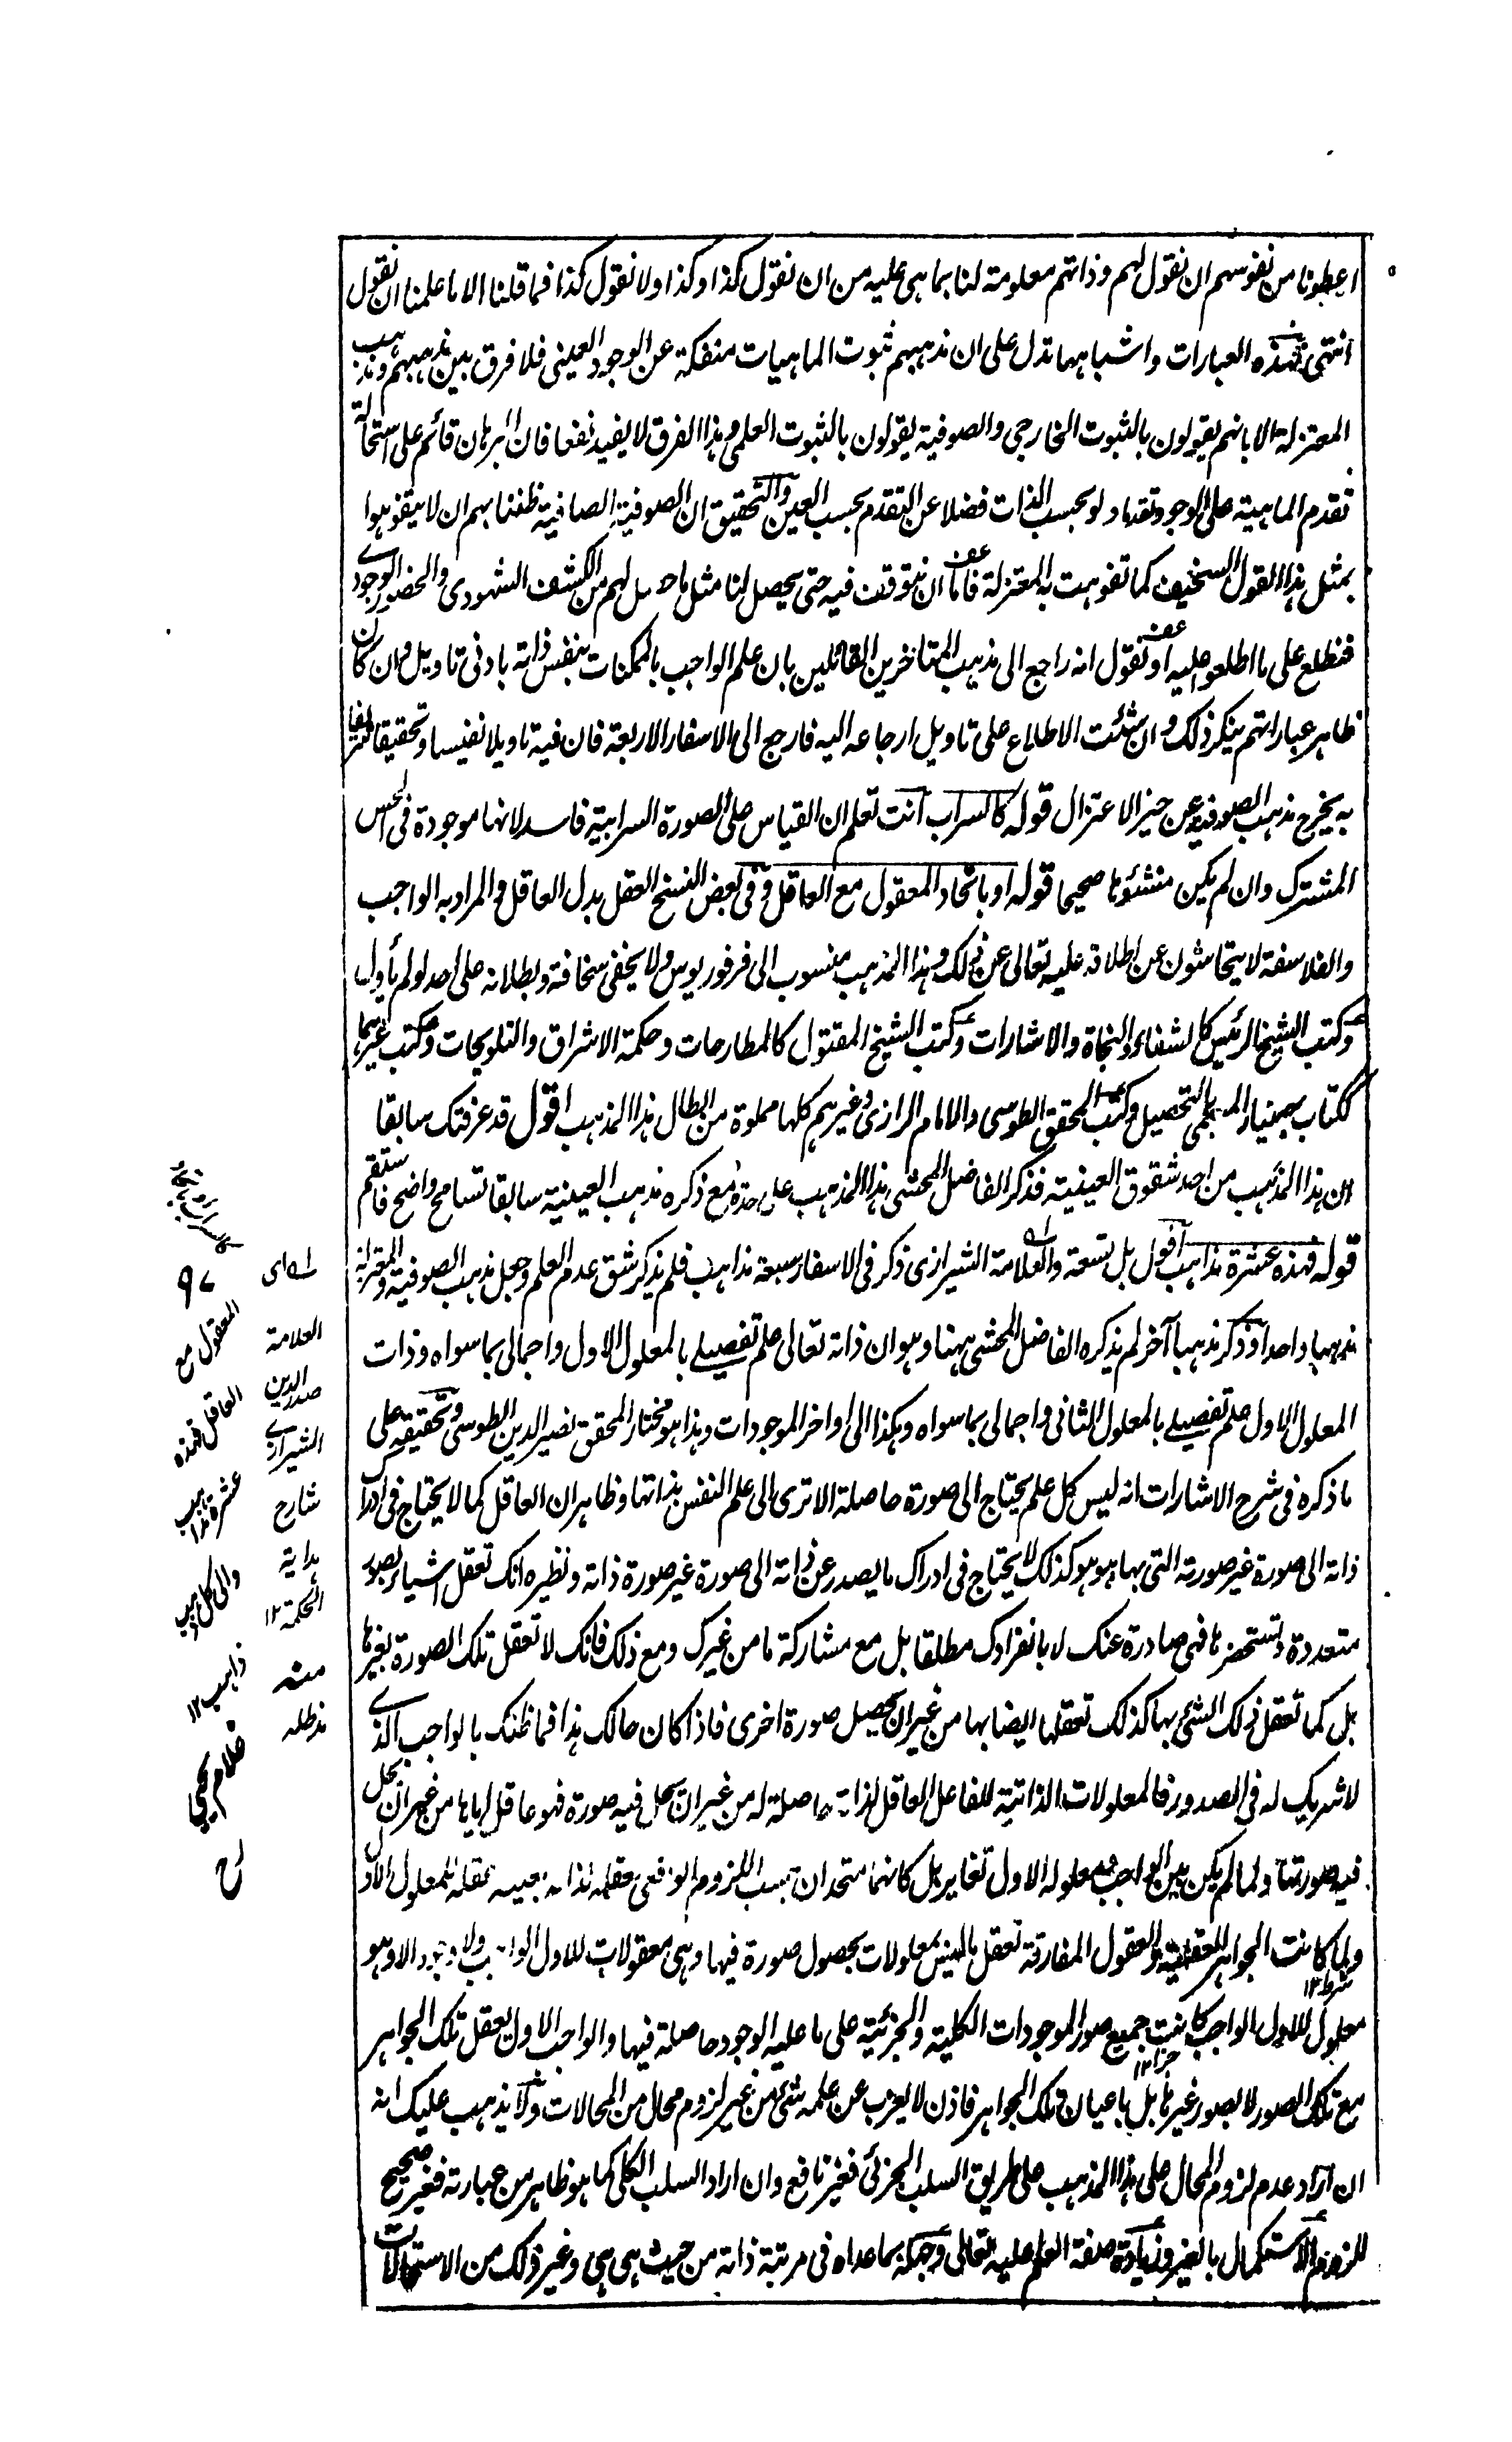 اعطونا من نفوسهم ان نقول لهم وذاتهم معلومة لنا بما هى عليه من ان نقول كذا وكذا ولا نقول كذا فما قلنا الا ما علمنا ان نقول
انتهى فهذه العبارات واشباهها تدل على ان مذهبهم ثبوت الماهيات منفكة عن الوجود العينى فلا فرق بين مذهبهم ومذهب
المعتزلة الا بانهم يقولون بالثبوت الخارجى والصوفية يقولون بالثبوت العلمى وهذا الفرق لا يفيد نفعا فان البرهان قائم على استحالة
تقدم الماهية على الوجود تقدما ولو بحسب الذات فضلا عن التقدم بحسب العين والتحقيق ان الصوفية الصافية ظننا بهم ان لا يتفوهوا
بمثل هذا القول السخيف كما تفوهت به المعتزلة فاما ان نتوقف فيه حتى يحصل لنا مثل ما حصل لهم من الكشف الشهودى والحضور الوجودى
فنطلع على ما اطلعوا عليه او نقول انه راجع الى مذهب المتاخرين القائلين بان علم الواجب بالممكنات بنفس ذاته بادنى تاويل وان كان
ظاهر عباراتهم ينكر ذلك وان شئت الاطلاع على تاويل ارجاعه اليه فارجع الى الاسفار الاربعة فان فيه تاويلا نفيسا وتحقيقا شريفا
به يخرج مذهب الصوفية عن حيز الاعتزال قوله كالسراب انت تعلم ان القياس على الصورة السرابية فاسد لانها موجودة فى الحس
المشترك وان لم يكن منشؤها صحيحا قوله او باتحاد المعقول مع العاقل وفى بعض النسخ العقل بدل العاقل والمراد به الواجب
والفلاسفة لا يتحاشون عن اطلاقه عليه تعالى عن ذلك وهذا المذهب منسوب الى فرفوريوس ولا يخفى سخافة وبطلانه على احد لو لم يأول
وكتب الشيخ الرئيس كالشفاء والنجاة والاشارات وكتب الشيخ المقتول كالمطارحات وحكمة الاشراق والتلويحات وكتب غيرهما
ككتاب بهمنيار المسمى بالتحصيل وكتب المحقق الطوسى والامام الرازى وغيرهم كلها مملوة من ابطال هذا المذهب اقول قد عرفتك سابقا
ان هذا المذهب من احد شقوق العينية فذكر الفاضل المحشى هذا المذهب على حدة مع ذكره مذهب العينية سابقا تسامح واضح فاستقم
قوله فهذه عشرة مذاهب اقول بل تسعة والعلامة الشيرازى ذكر فى الاسفار سبعة مذاهب فلم يذكر شق عدم العلم وجعل مذهب الصوفية والمعتزلة
مذهبا واحدا وذكر مذهبا آخر لم يذكره الفاضل المحشى ههنا وهو ان ذاته تعالى علم تفصيلے بالمعلول الاول واجمالى بما سواه وذات
المعلول الاول علم تفصيلے بالمعلول الثانى واجمالى بما سواه وهكذا الى اواخر الموجودات وهذا هو مختار المحقق نصير الدين الطوسى وتحقيقه على
ما ذكره فى شرح الاشارات انه ليس كل علم يحتاج الى صورة حاصلة الا ترى الى علم النفس بذاتها وظاهر ان العاقل كما لا يحتاج فى ادراك
ذاته الى صورة غير صورته التى بها هو هو كذلك لا يحتاج فى ادراك ما يصدر عن ذاته الى صورة غير صورة ذاته ونظيره انك تعقل اشياء بصور
متعددة وتستحضرها فهى صادرة عنك لا بانفرادك مطلقا بل مع مشاركة ما من غيرك ومع ذلك فانك لا تعقل تلك الصورة بغيرها
بل كما تعقل ذلك الشئ بها كذلك تعقلها ايضا بها من غير ان تحصيل صورة اخرى فاذا كان حالك هذا فما ظنك بالواجب الذے
لا شريك له فى الصدور فالمعلولات الذاتية للفاعل العاقل لذاته حاصلة له من غير ان يحل فيه صورة فهو عاقل اياها من غير ان يحل
فيه صورتها ولما لم يكن بين الواجب ومعلوله الاول تغاير بل كانهما متحدان بحسب اللزوم الواقعى فعقله لذاته بعينه عقله للمعلول الاول
ولما كانت الجواهر العقلية والعقول المفارقة تعقل ما ليس بمعلولات بحصول صورة فيها وهى معقولات للاول الواجب ولا وجود الا وهو
شرط ١٢
معلول للاول الواجب كانت جميع صور الموجودات الكلية والجزئية على ما عليه الوجود حاصلة فيها والواجب الاول يعقل تلك الجواهر
جزا ١٢
مع تلك الصور لا بصور غيرها بل باعيان تلك الجواهر فاذن لا يعزب عن علمه شئ من غير لزوم محال من المحالات ولا يذهب عليك انه
ان اراد عدم لزوم المحال على هذا المذهب على طريق السلب الجزئى فغير نافع وان اراد السلب الكلى كما هو ظاهر من عبارته فغير صحيح
للزوم الاستكمال بالغير وزيادة صفة العلم عليه تعالى وجهله بما عداه فى مرتبة ذاته من حيث هى هى وغير ذلك من الاستحالات
اے
العلامة
صدر الدين
الشيرازے
شارح
هداية
الحكمة ١٢
منه
مدظله
المعقول مع
العاقل فهذه
عشرة مذاهب
والى كل مذهب
ذاهب ١٢
غلام يحيى
رح